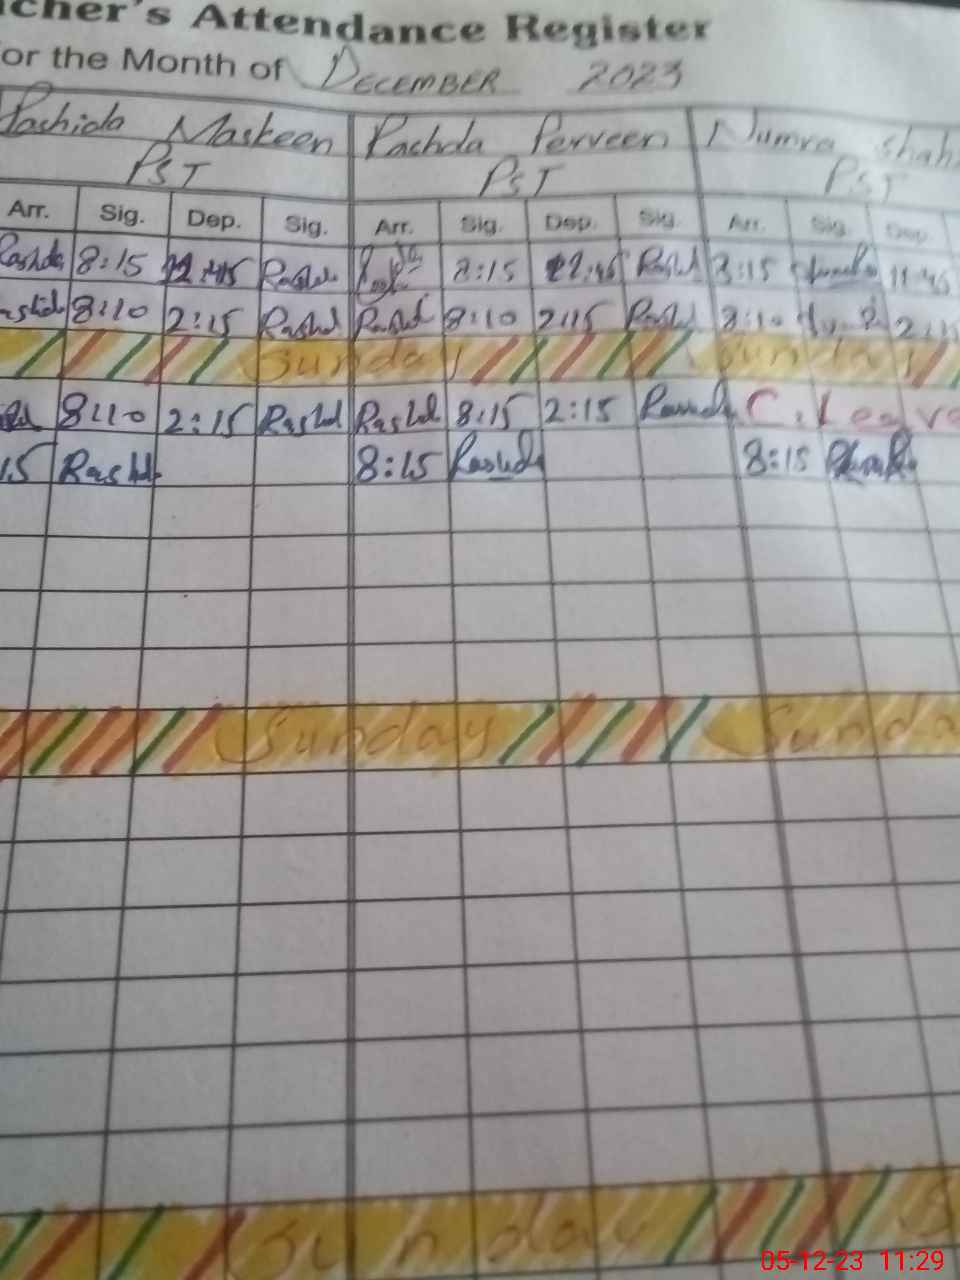 cher's Attendance Register
or the Month of DECEMBER 2023
Rashida Maskeen Rachda Perveen Numra Shah
PST PST PST
Arr. Sig. Dep. Sig. Arr. Sig. Dep. Sig. Arr. Sig. Dep.
8:15 12:45 8:15 12:45 8:15 11:45
8:10 2:15 Rashd Rashd 8:10 2:15 Rashd 8:10
Sunday Sunday
8:10 2:15 Rashd Rashd 8:15 2:15 C. Leave
15 Rashd 8:15 Rashd 8:15
Sunday Sunda
Sunday S
05-12-23 11:29